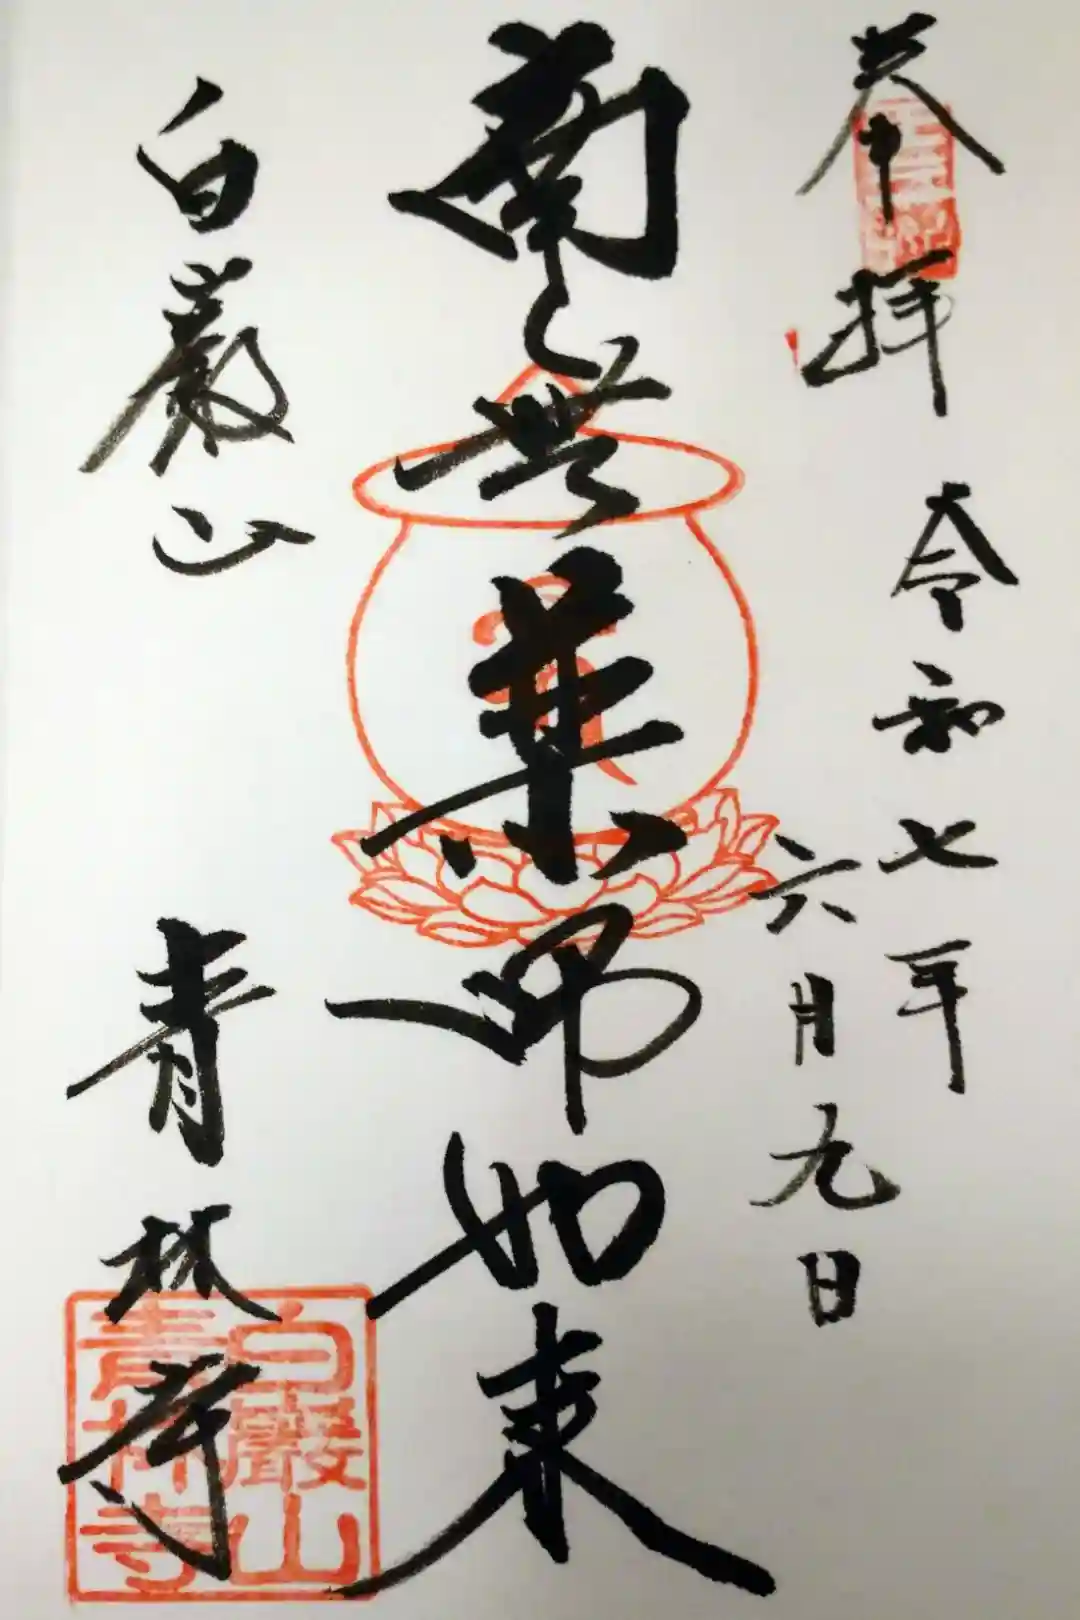 奉拝
令和七年
六月九日
南無薬師如来
白巌山
青林寺
白巖山
青林寺